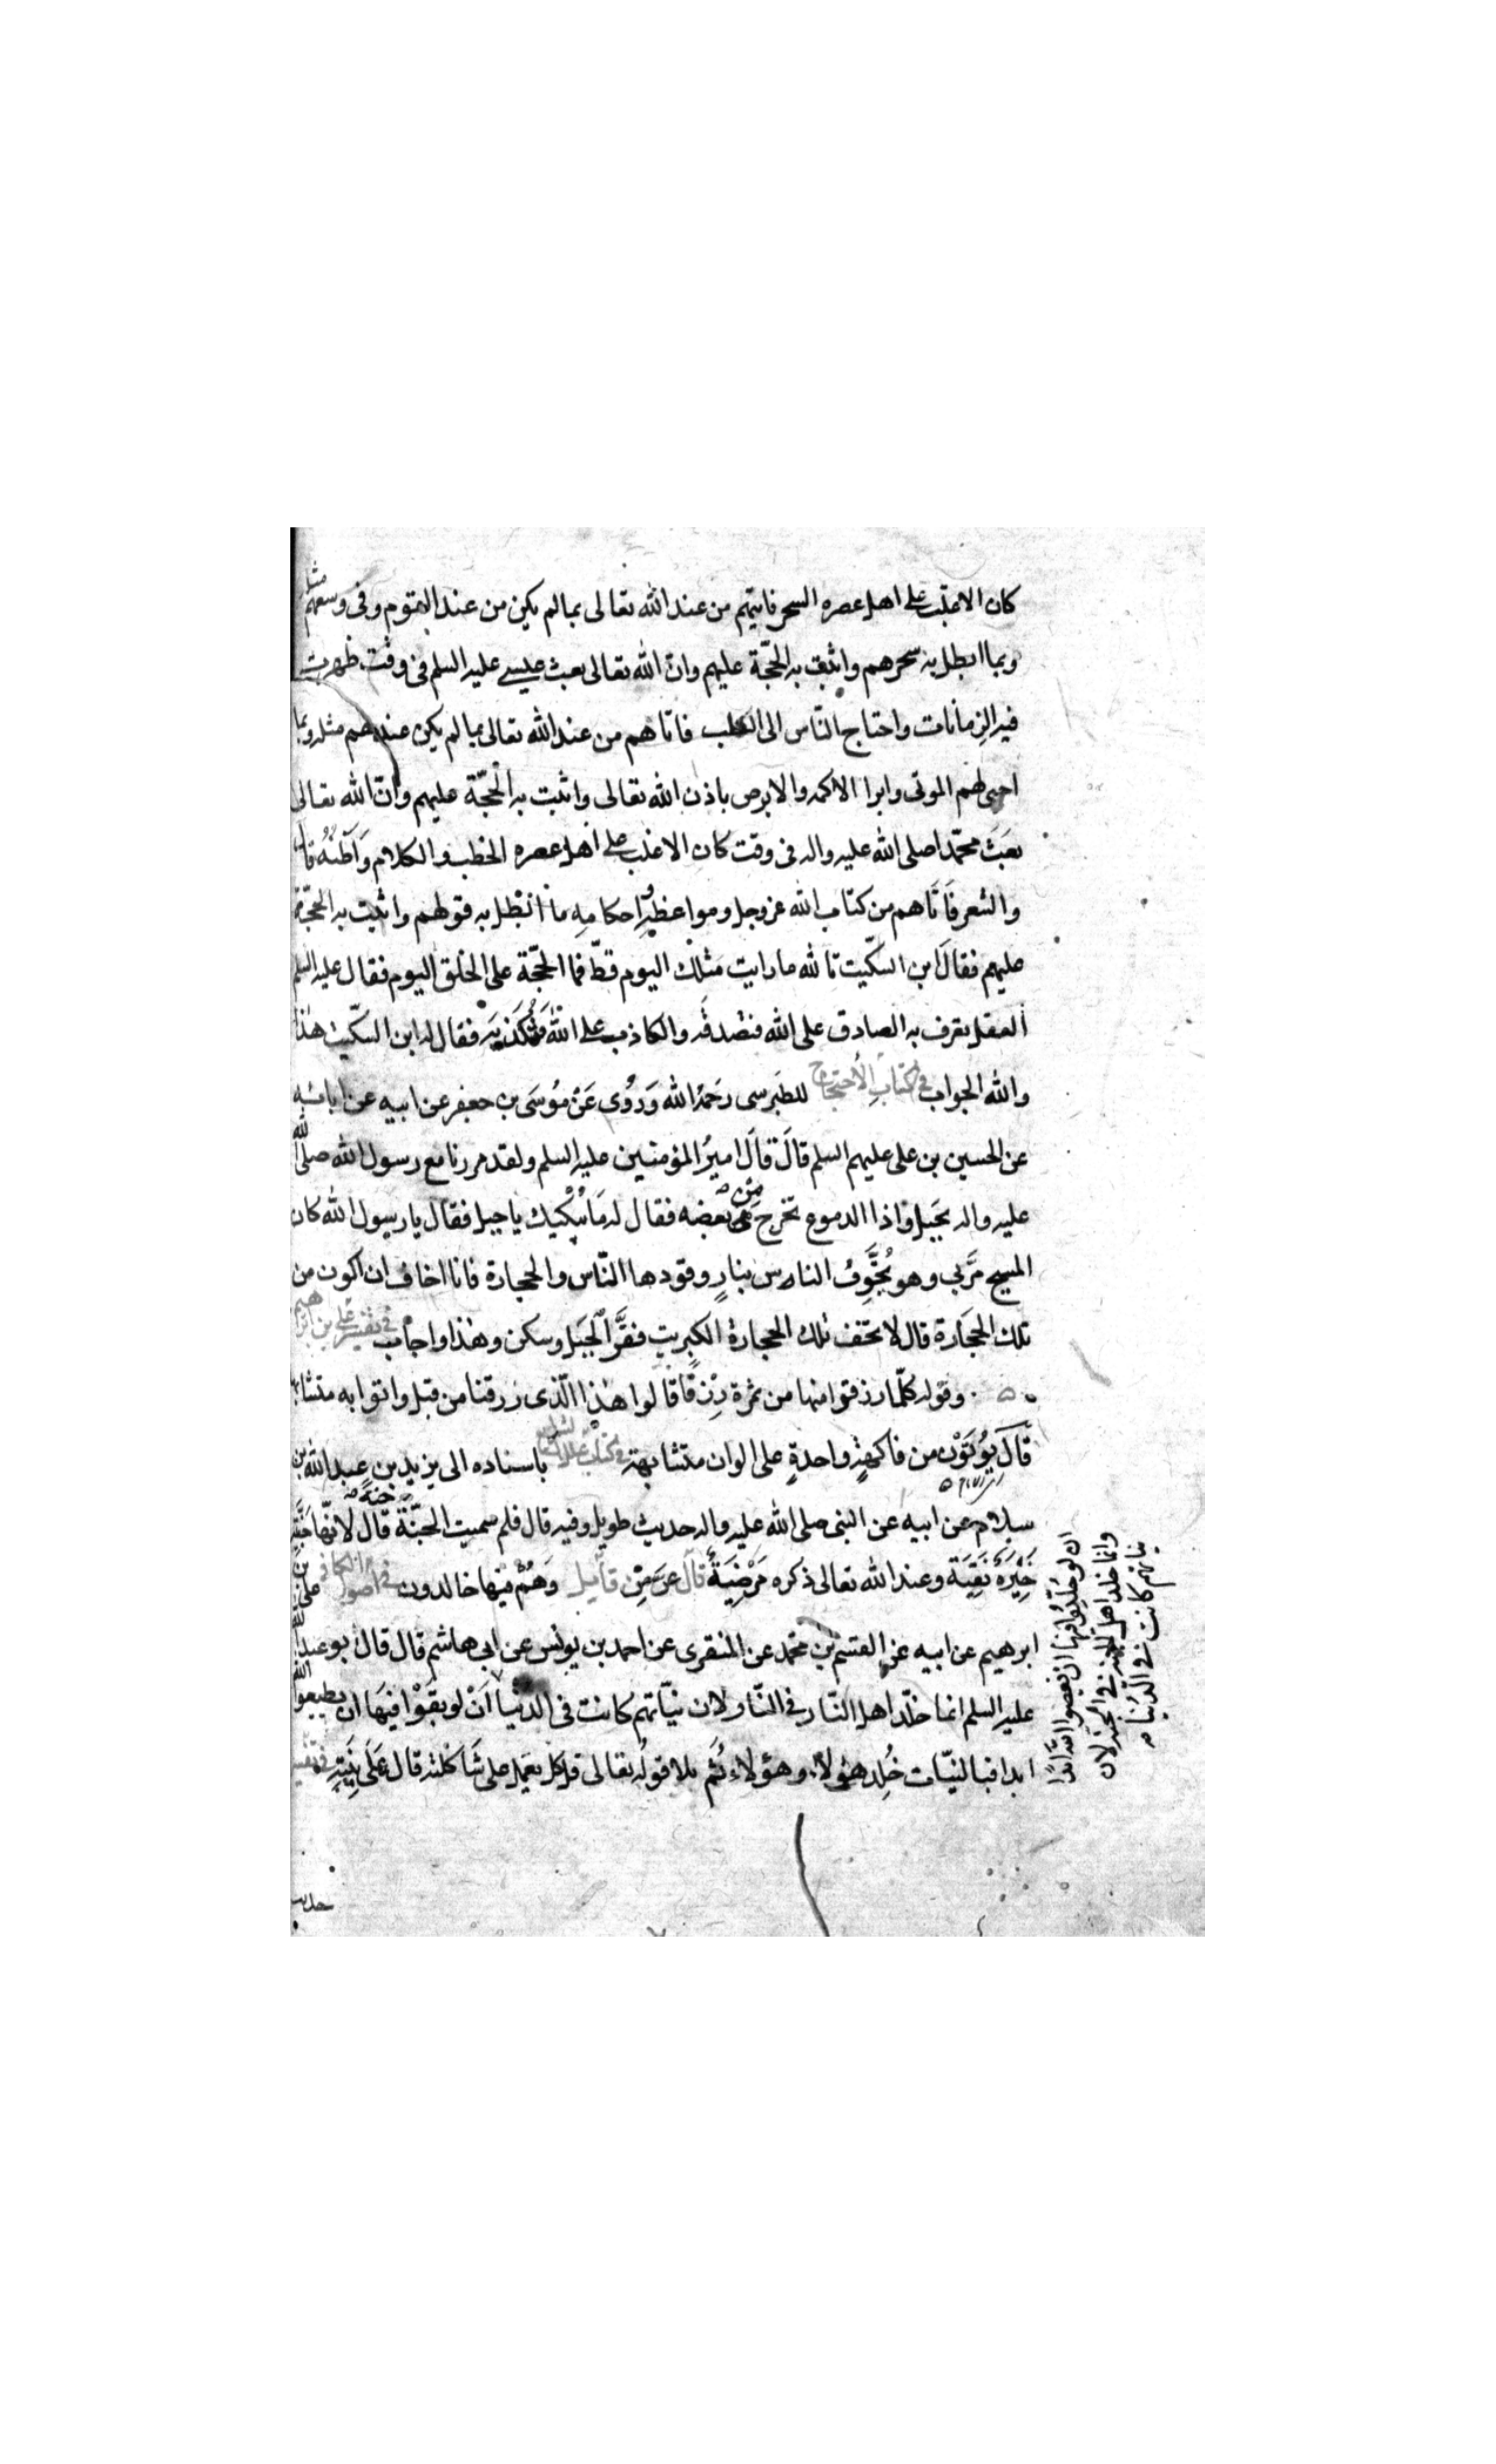 كان الاغلب على اهل عصره السحر فاتيهم من عند الله تعالى بما لم يكن من عند القوم وفى وسعهم مثله
وبما ابطل به سحرهم واثبت به الحجّة عليهم وان الله تعالى بعث عيسى عليه السلم فى وقت ظهرت
فيه الزمانات واحتاج النّاس الى الطب فاتاهم من عند الله تعالى بما لم يكن عندهم مثله وبما
احيى لهم الموتى وابرا الاكمه والابرص باذن الله تعالى واثبت به الحجّة عليهم وانّ الله تعالى
بعَثَ محمّدا صلى الله عليه واله فى وقت كان الاغلب على اهل عصره الخطب والكلام وَاَظنّهُ قال
والشعر فَاتَاهم من كتاب الله عز وجل ومواعظهِ واحكامهِ ما ابْطل به قولهم واثبت به الحجّة
عليهم فقالَ ابن السكّيت تالله ما رايت مثلك اليوم قطّ فما الحجّة على الخلق اليوم فقال عليه السلم
العقل يعرف به الصادق على الله فتصدقه والكاذب على الله فتُكذبه فقال له ابن السكّيت هذا
والله الجواب فى كتاب الاحتجاج للطبرسى رَحَمهُ الله وَرُوِى عَنْ مُوسَى بن جعفر عن ابيه عن ابائه
عن الحسين بن على عليهم السلم قالَ قالَ اميرُ المؤمنين عليه السلم ولقد مررنا مع رسول الله صلى الله
عليه واله بجَبل واذا الدموع تخرج من بعضه فقال له مَا يُبْكيك يا جبل فقال يا رسول الله كان
المسيح مرَّ بى وهو يُخَوِّفُ الناس بنارٍ وقودها النّاس والحجارة فانا اخاف ان اكون من
تلك الحجَارة قال لا تخف تلك الحجارة الكبريت فقرَّ الجبَل وسكن وهذا واجاب فى تفسير على بن ابراهيم
وقوله كلّما رزقوا منها من ثمرة رِزقًا قالوا هذا الّذى رزقنا من قبل واتوا به متشابها
قالَ يُوتَوْن من فاكهةٍ واحدةٍ على الوان متشابهة فى كتاب علل الشرايع باسناده الى يزيد بن عبد الله بن
سلام عن ابيه عن النبى صلى الله عليه واله حديث طويل وفيه قال فلم سميت الجنّة جنة قال لانّها جَنَّة
خَيِّرَة نَقِيَة وعند الله تعالى ذكره مَرْضِيَةً قال عزّ مِن قائيل وَهُمْ فيها خالدون فى اصول الكافى على بن
ابرهيم عن ابيه عن القسم بن محمد عن المنقرى عن احمد بن يونس عن ابى هاشم قال قال ابو عبد الله
عليه السلم انما خلّد اهل النّار فى النّار لان نيّاتهم كانت فى الدنيا اَنْ لو بقَوْا فيهَا ان يطيعوا الله
ابدا فبالنيّات خُلِد هؤلاء وهؤلاء ثُم تلا قولُه تعالى قل كل يعمل على شاكلته قال عَلَى نِيَتِهِ فى تفسير
ان لو خُلِّدُوا فيها ان يعصوا الله ابدا
وانما خلد اهل الجنة فى الجنة لان
نياتهم كانت فى الدُنيا